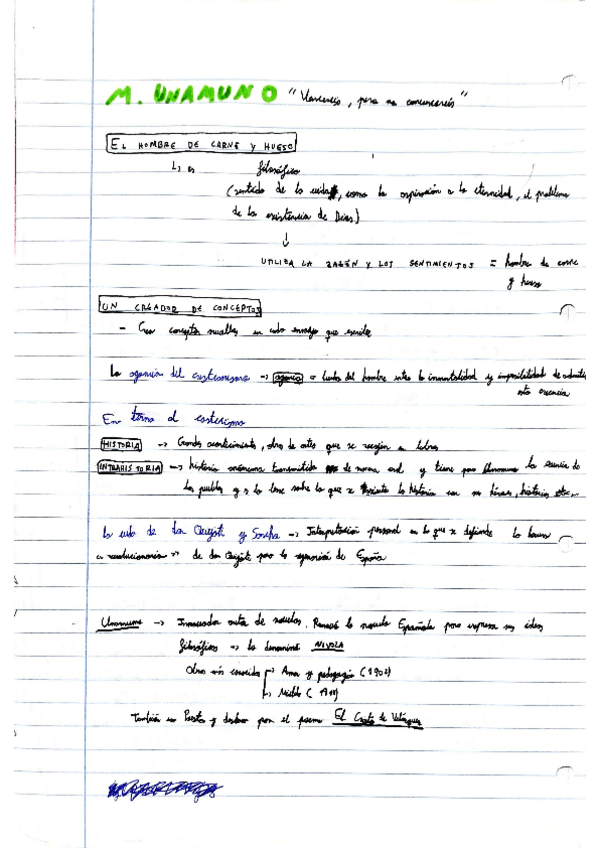 M. UNAMUNO "Venceréis, pero no convenceréis"
EL HOMBRE DE CARNE Y HUESO
↳ es filosófico
(sentido de la vida, como la aspiración a la eternidad, el problema
de la existencia de Dios)
↓
UTILIZA LA RAZÓN Y LOS SENTIMIENTOS = hombre de carne
y hueso
UN CREADOR DE CONCEPTOS
- Crea conceptos en cada ensayo que escribe
La agonía del cristianismo → agonía = lucha del hombre entre la inmortalidad y imposibilidad de
esta creencia
En torno al
HISTORIA → Grandes acontecimientos, obras de arte que se recogen en libros
INTRAHISTORIA → historia anónima transmitida de manera oral y tiene que la esencia de
los pueblos y es la base sobre lo que se la historia con
La vida de don Quijote y Sancho → Interpretación personal en la que se defiende la
de don Quijote para la regeneración de España
Unamuno → Innovador autor de novelas. la novela Española para expresar sus ideas
filosóficas → la denominó NIVOLA
Obras más conocidas → Amor y pedagogía (1902)
↳ Niebla (
También es Poeta y destaca por el poema El Cristo de Velázquez